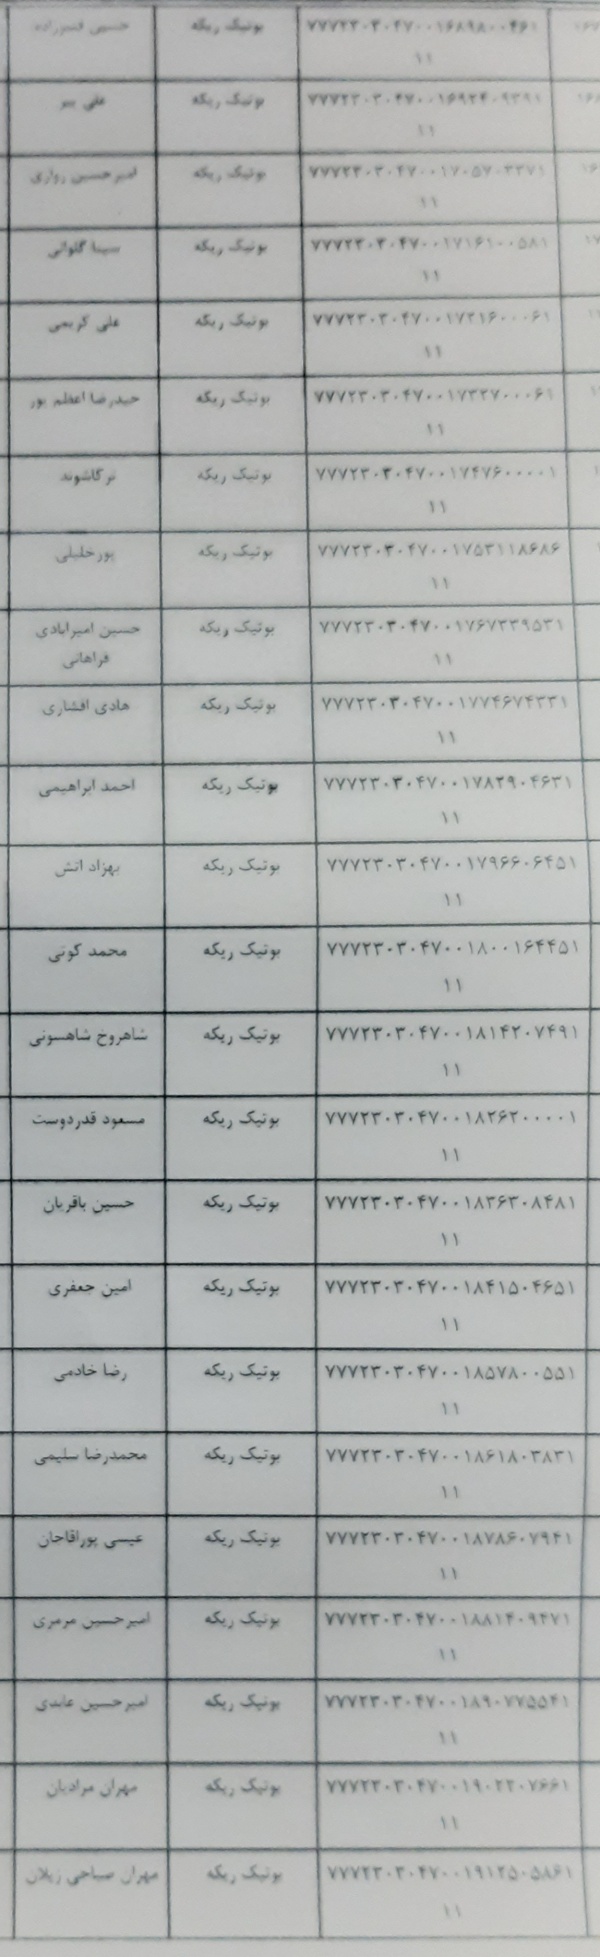 ۷۷۷۲۳۰۳۰۴۷۰۰۱۶۸۹۸۰۰۴۶۱ بوتیک ریکه حسین قنبرزاده
۱۱
۷۷۷۲۳۰۳۰۴۷۰۰۱۶۹۲۴۰۹۳۹۱ بوتیک ریکه علی ببر
۱۱
۷۷۷۲۳۰۳۰۴۷۰۰۱۷۰۵۷۰۳۳۷۱ بوتیک ریکه امیرحسین زواری
۱۱
۷۷۷۲۳۰۳۰۴۷۰۰۱۷۱۶۱۰۰۵۸۱ بوتیک ریکه سینا گلوانی
۱۱
۷۷۷۲۳۰۳۰۴۷۰۰۱۷۲۱۶۰۰۰۶۱ بوتیک ریکه علی کریمی
۱۱
۷۷۷۲۳۰۳۰۴۷۰۰۱۷۳۲۷۰۰۰۶۱ بوتیک ریکه حیدرضا اعظم پور
۱۱
۷۷۷۲۳۰۳۰۴۷۰۰۱۷۴۷۶۰۰۰۰۱ بوتیک ریکه ترکاشوند
۱۱
۷۷۷۲۳۰۳۰۴۷۰۰۱۷۵۳۱۱۸۶۸۶ بوتیک ریکه پورخلیلی
۱۱
۷۷۷۲۳۰۳۰۴۷۰۰۱۷۶۷۳۳۹۵۳۱ بوتیک ریکه حسین امیرابادی
۱۱ فراهانی
۷۷۷۲۳۰۳۰۴۷۰۰۱۷۷۴۶۷۴۳۳۱ بوتیک ریکه هادی افشاری
۱۱
۷۷۷۲۳۰۳۰۴۷۰۰۱۷۸۳۹۰۴۶۳۱ بوتیک ریکه احمد ابراهیمی
۱۱
۷۷۷۲۳۰۳۰۴۷۰۰۱۷۹۶۶۰۶۴۵۱ بوتیک ریکه بهزاد اتش
۱۱
۷۷۷۲۳۰۳۰۴۷۰۰۱۸۰۰۱۶۴۴۵۱ بوتیک ریکه محمد کوتی
۱۱
۷۷۷۲۳۰۳۰۴۷۰۰۱۸۱۴۲۰۷۴۹۱ بوتیک ریکه شاهروخ شاهسونی
۱۱
۷۷۷۲۳۰۳۰۴۷۰۰۱۸۲۶۲۰۰۰۰۱ بوتیک ریکه مسعود قدردوست
۱۱
۷۷۷۲۳۰۳۰۴۷۰۰۱۸۳۶۳۰۸۴۸۱ بوتیک ریکه حسین باقریان
۱۱
۷۷۷۲۳۰۳۰۴۷۰۰۱۸۴۱۵۰۴۶۵۱ بوتیک ریکه امین جعفری
۱۱
۷۷۷۲۳۰۳۰۴۷۰۰۱۸۵۷۸۰۰۵۵۱ بوتیک ریکه رضا خادمی
۱۱
۷۷۷۲۳۰۳۰۴۷۰۰۱۸۶۱۸۰۳۸۳۱ بوتیک ریکه محمدرضا سلیمی
۱۱
۷۷۷۲۳۰۳۰۴۷۰۰۱۸۷۸۶۰۷۹۴۱ بوتیک ریکه عیسی پوراقاجان
۱۱
۷۷۷۲۳۰۳۰۴۷۰۰۱۸۸۱۴۰۹۲۷۱ بوتیک ریکه امیرحسین مرمری
۱۱
۷۷۷۲۳۰۳۰۴۷۰۰۱۸۹۰۷۷۵۵۴۱ بوتیک ریکه امیرحسین عابدی
۱۱
۷۷۷۲۳۰۳۰۴۷۰۰۱۹۰۲۲۰۷۶۶۱ بوتیک ریکه مهران مرادیان
۱۱
۷۷۷۲۳۰۳۰۴۷۰۰۱۹۱۲۵۰۵۸۶۱ بوتیک ریکه مهران صباحی زیلان
۱۱